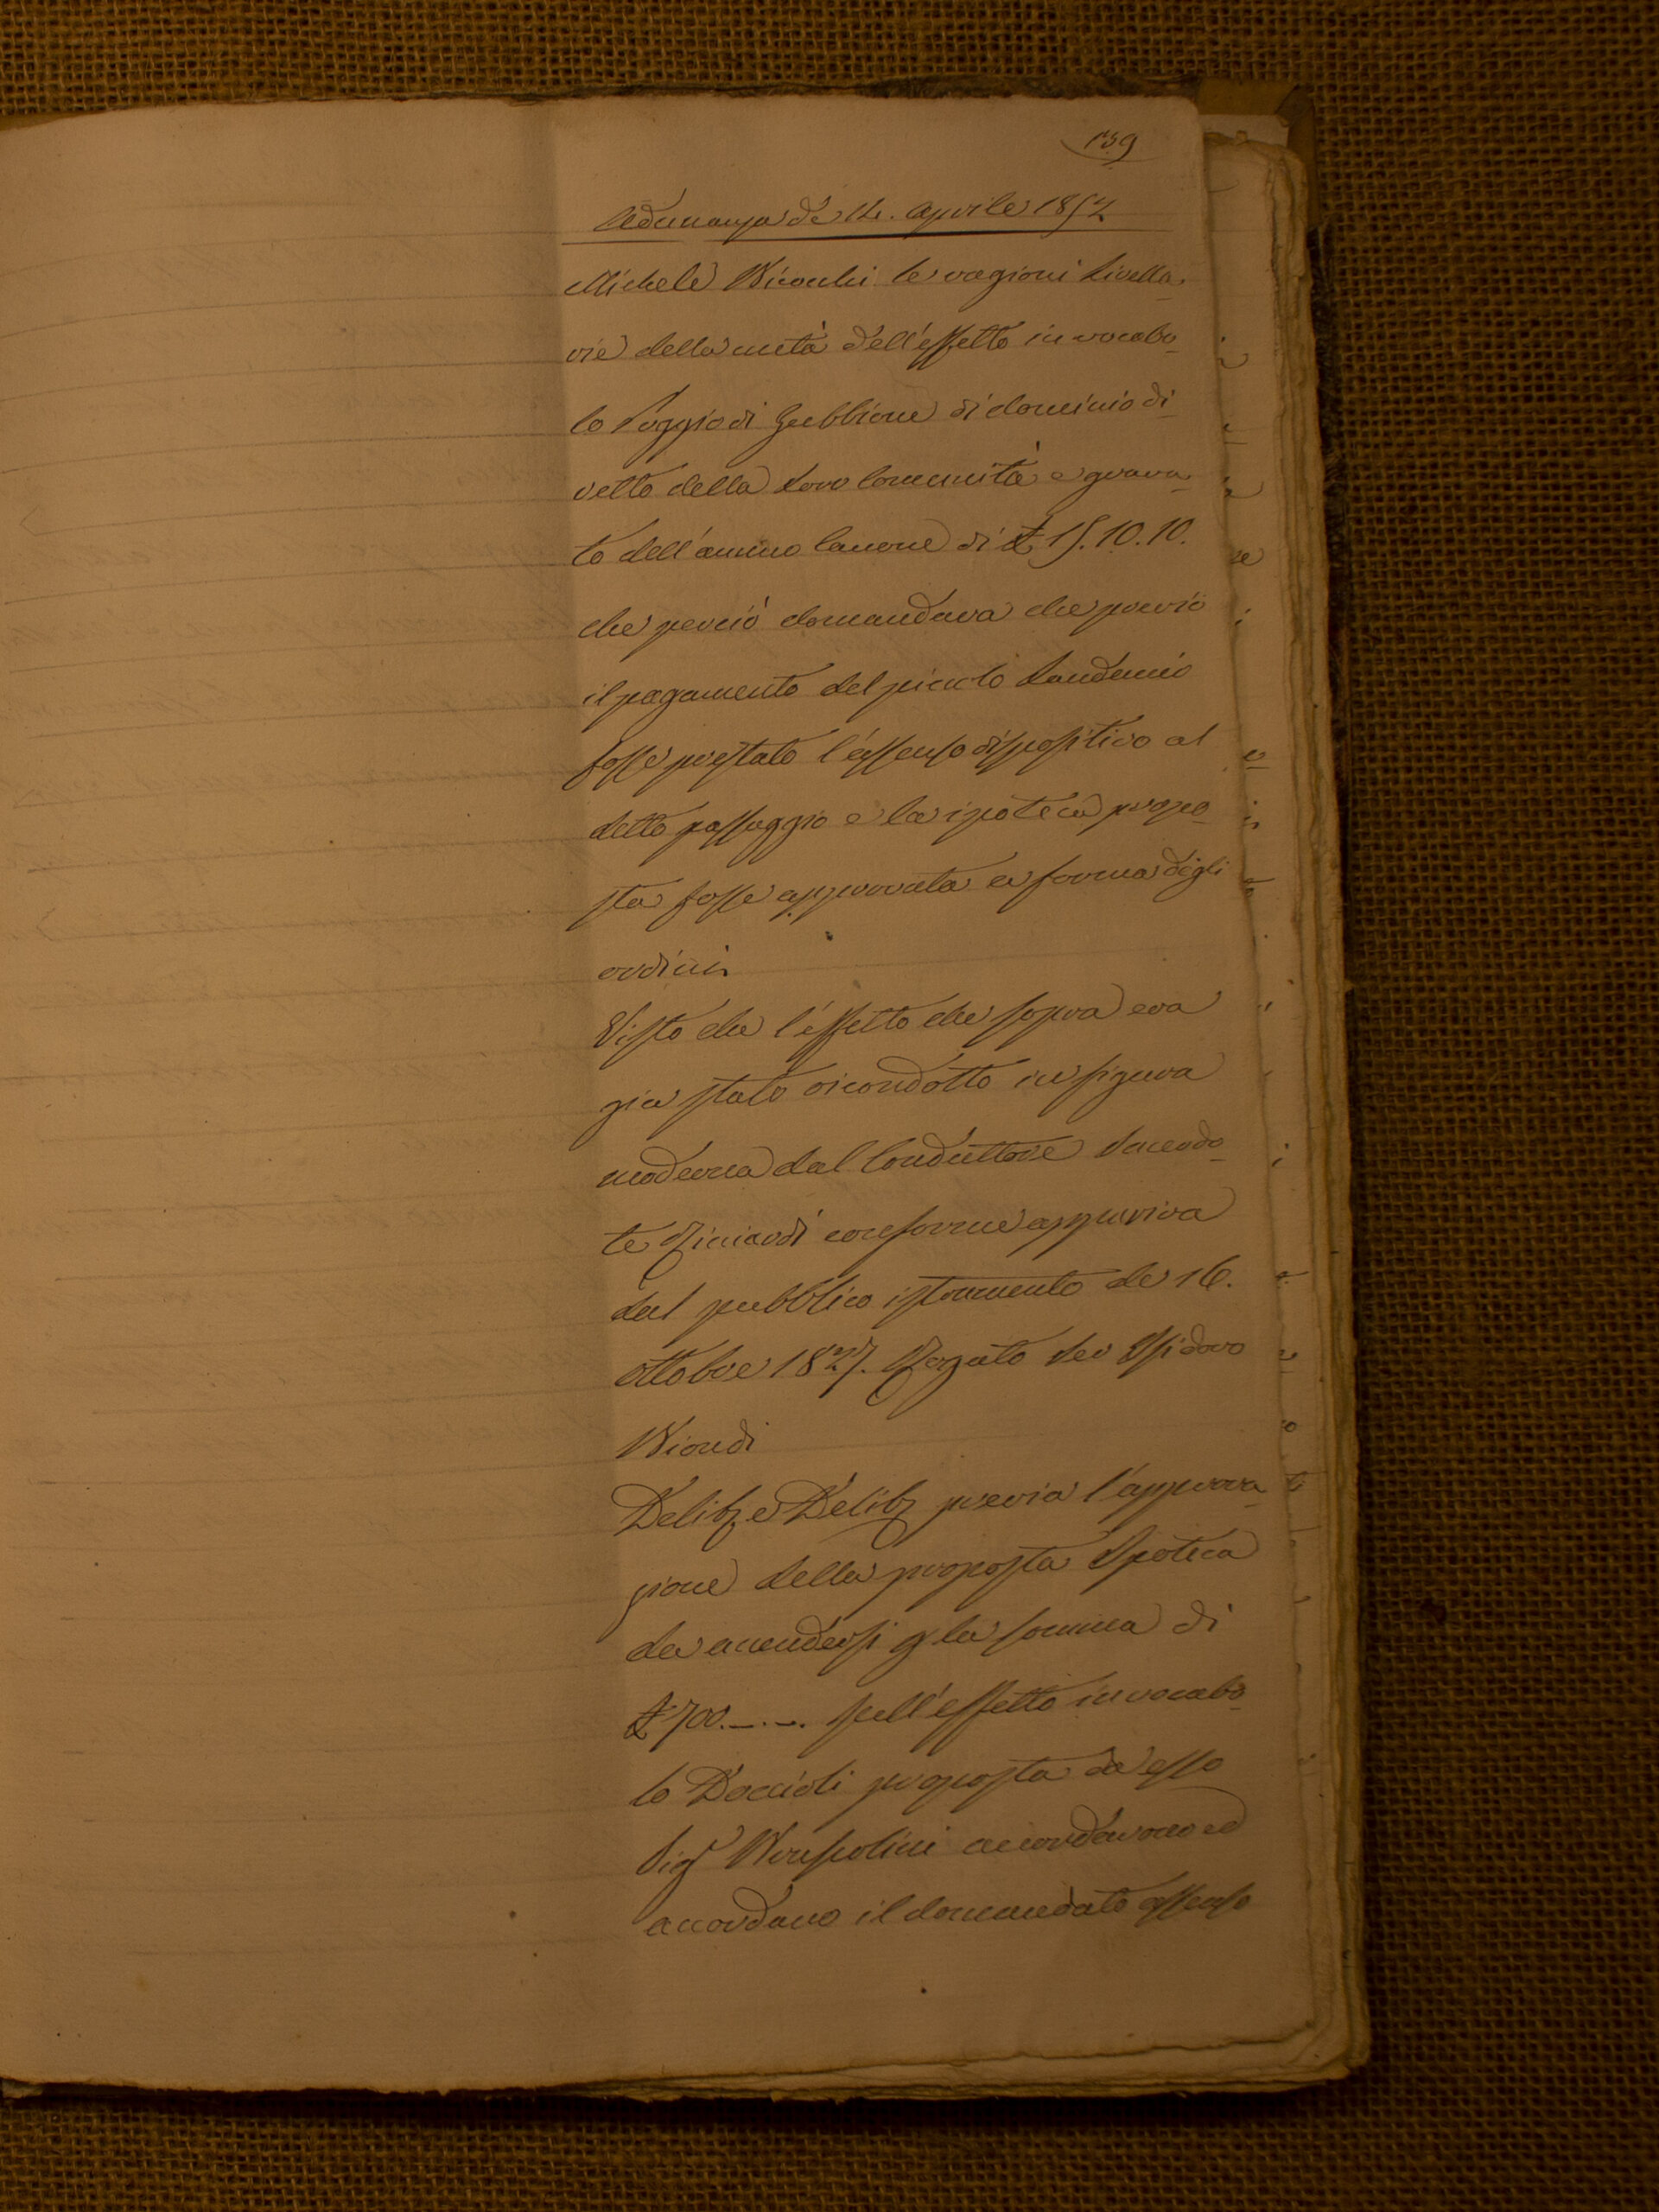 139
Adunanza de 14. Aprile 1852
Michele Bicochi le ragioni Livella-
rie della metà dell'effetto in vocabo-
lo Poggio di Gubbione di dominio di-
retto della Loro Comunità e grava-
to dell'annuo Canone di £ 15.10.10.
che perciò domandava che previo
il pagamento del piccolo Laudemio
fosse prestato l'assenso dispositivo al
detto passaggio e la ipoteca propo-
sta fosse approvata a forma degli
ordini
Visto che l'effetto che sopra era
gia stato ricondotto in figura
moderna dal Conduttore Sacerdo-
te Ricciardi conforme appariva
dal pubblico istrumento de 16.
ottobre 1827. Rogato Ser Isidoro
Biondi
Delibz e Delibz previa l'approva-
zione della proposta Ipoteca
da accendersi p la somma di
£ 700.–.–. sull'effetto in vocabo-
lo Doccioli proposta da esso
Sigr accordavano ed
accordano il domandato assenso